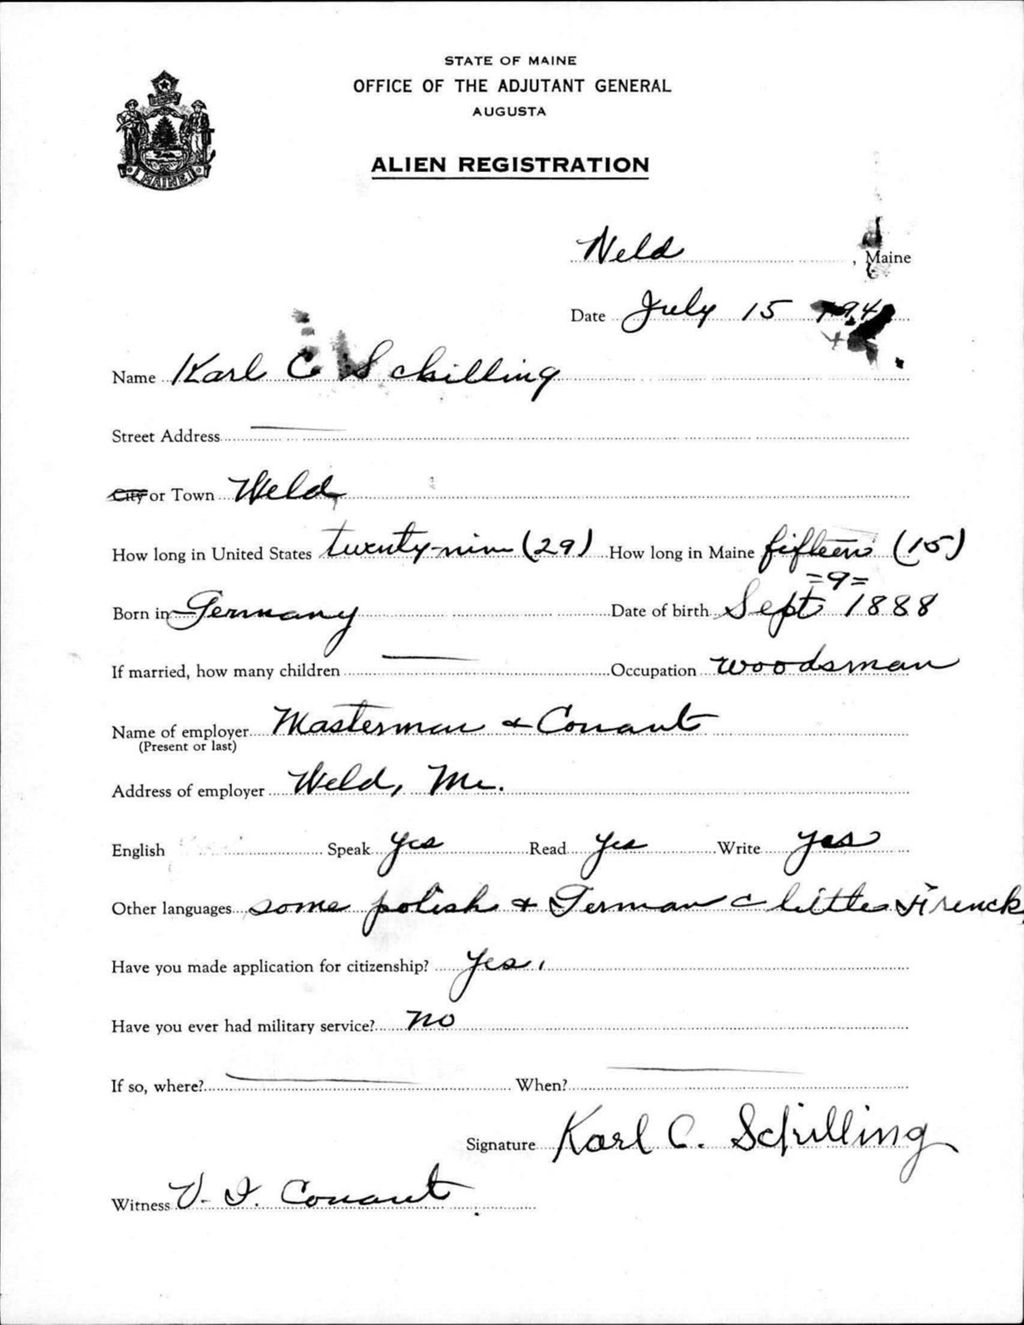 STATE OF MAINE
OFFICE OF THE ADJUTANT GENERAL
AUGUSTA
ALIEN REGISTRATION
MAINE
Weld, Maine
Date July 15 194
Name Karl C Schilling
Street Address
City or Town Weld
How long in United States twenty-nine (29) How long in Maine fifteen (15)
=9=
Born in Germany Date of birth Sept 1888
If married, how many children Occupation woodsman
Name of employer Masterman & Conant
(Present or last)
Address of employer Weld, Me.
English Speak yes Read yes Write yes
Other languages some polish & German & little French
Have you made application for citizenship? Yes.
Have you ever had military service? no
If so, where? When?
Signature Karl C. Schilling
Witness V. I. Conant